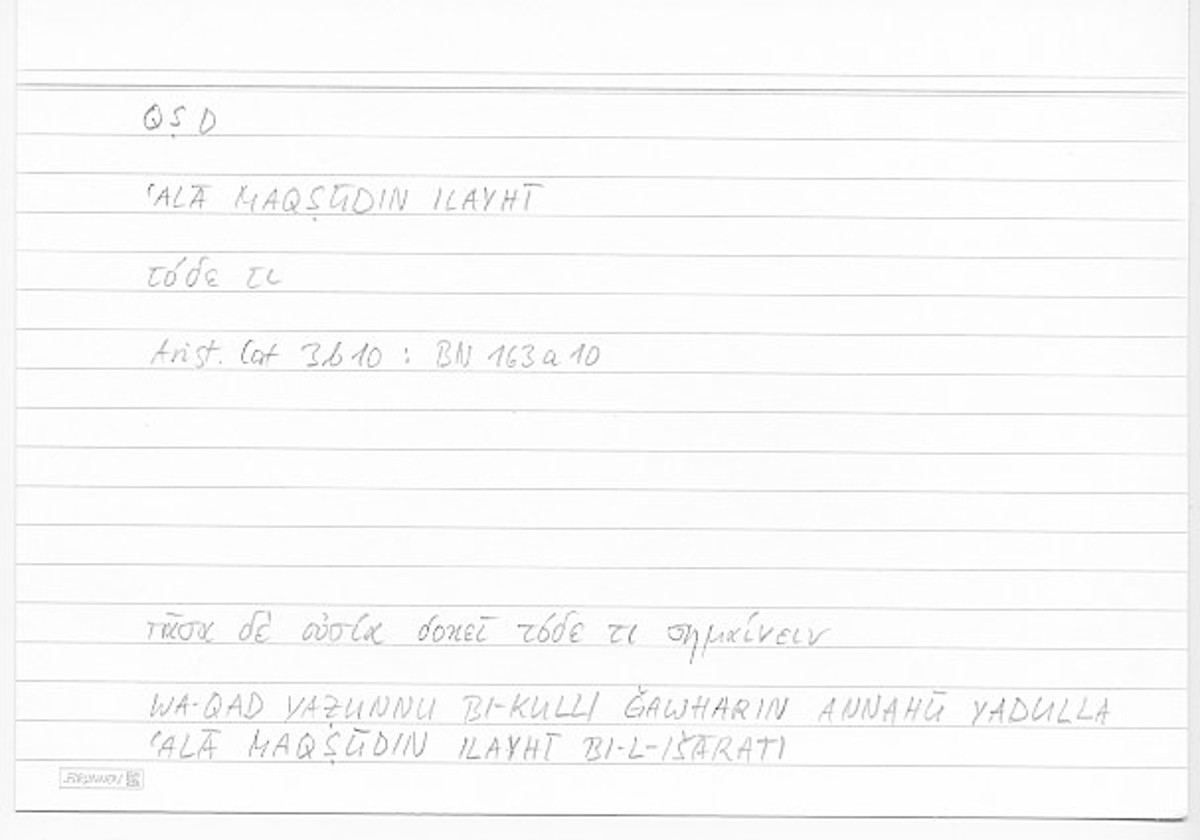 QṢD
ʿALĀ MAQṢŪDIN ILAYHĪ
τόδε τι
Arist. Cat 3b10 : BN 163a10
πᾶσα δὲ οὐσία δοκεῖ τόδε τι σημαίνειν
WA-QAD YAẒUNNU BI-KULLI ǦAWHARIN ANNAHŪ YADULLA
ʿALĀ MAQṢŪDIN ILAYHĪ BI-L-IŠĀRATI
BRUNNEN